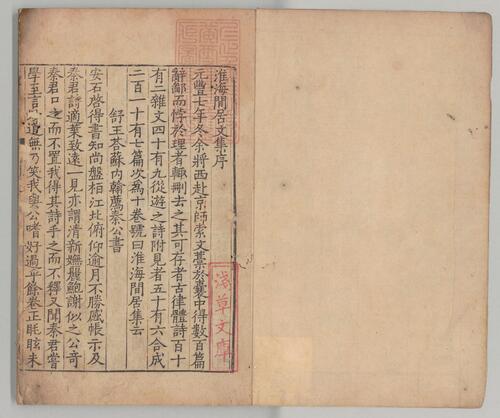 淮海閒居文集序
元豐七年冬余將西赴京師索文藁於囊中得數百篇
辭鄙而悖於理者輒刪去之其可存者古律體詩百十
有二雜文四十有九從遊之詩附見者五十有六合成
二百一十有七篇次為十卷號曰淮海閒居集云
舒王荅蘇内翰薦秦公書
安石啓得書知尚盤桓江北俯仰逾月不勝感悵示及
秦君詩適葉致遠一見亦謂清新嫵麗鮑謝似之公竒
秦君口之而不置我得其詩手之而不釋又聞秦君嘗
學至言道無乃笑我與公嗜好過乎餘卷正眊眩未
淺草文庫